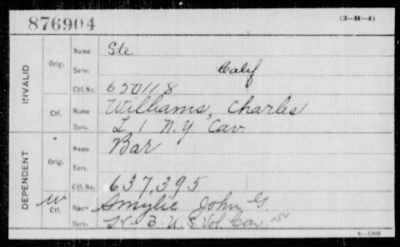 876904
(3-H-4)
INVALID
Orig.
Name Ste
Serv. Calif
Ctf. No. 650118
Ctf.
Name Williams, Charles
Serv. L 1 N.Y Cav
DEPENDENT
Orig.
Name Bar
Serv.
Ctf. No. 637,395
W
Ctf.
Name Smylie John G
Serv. 3 U.S Vol. Cav